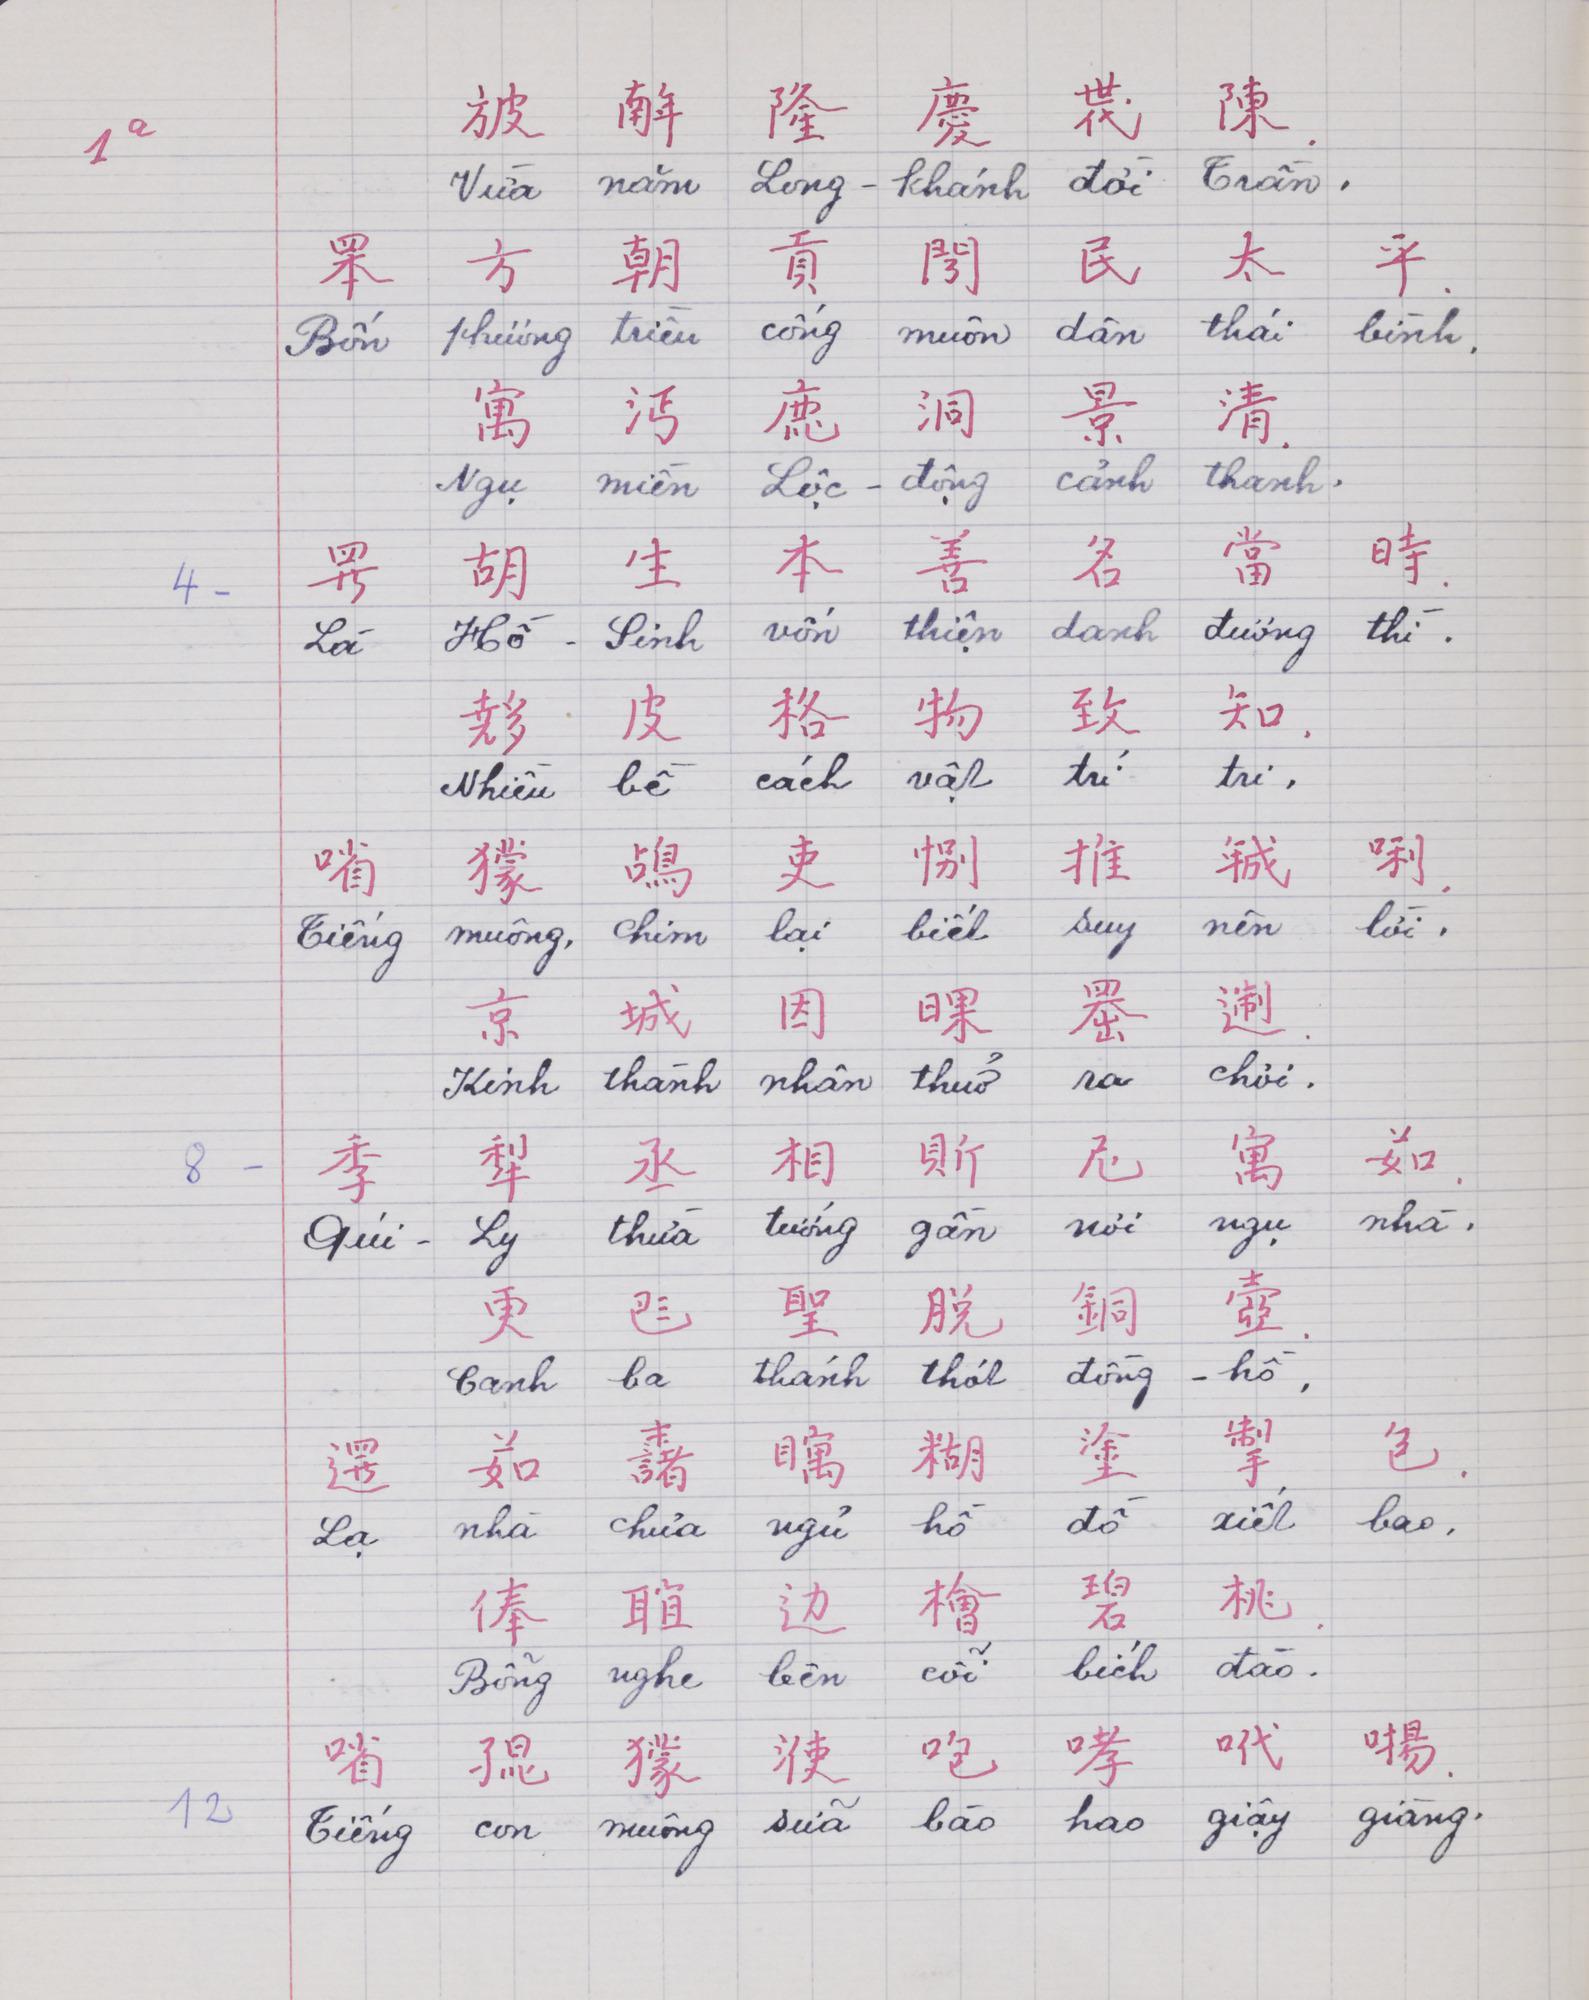 1ª
𣃣 𢆥 隆 慶 𠁀 陳.
Vừa năm Long - khánh đời Trần.
𦊚 方 朝 貢 𨷈 民 太 平.
Bốn phương triều cống muôn dân thái bình.
寓 沔 鹿 洞 景 清.
Ngụ miền Lộc - động cảnh thanh.
4 - 羅 胡 生 本 善 名 當 時.
Là Hồ - Sinh vốn thiện danh đương thì.
𡗉 皮 格 物 致 知.
Nhiều bề cách vật trí tri.
㗂 獴 鴣 吏 別 推 𢧚 唎.
Tiếng muông, chim lại biết suy nên lời.
京 城 因 𣋿 𦋦 𨔈.
Kinh thành nhân thuở ra chơi.
8 - 季 犂 丞 相 𧵆 尼 寓 茹.
Quí - Ly thừa tướng gần nơi ngụ nhà.
更 𠀧 聖 脱 銅 壺.
Canh ba thánh thót đồng - hồ,
邏 茹 𣜾 𥄭 糊 塗 掣 包.
Lạ nhà chửa ngủ hồ đồ xiết bao.
俸 𦖑 边 檜 碧 桃.
Bỗng nghe bên cỗi bích đào.
12 㗂 𡥵 獴 𣵰 咆 哮 𠯋 㖡.
Tiếng con muông sữa bào hao giậy giàng.